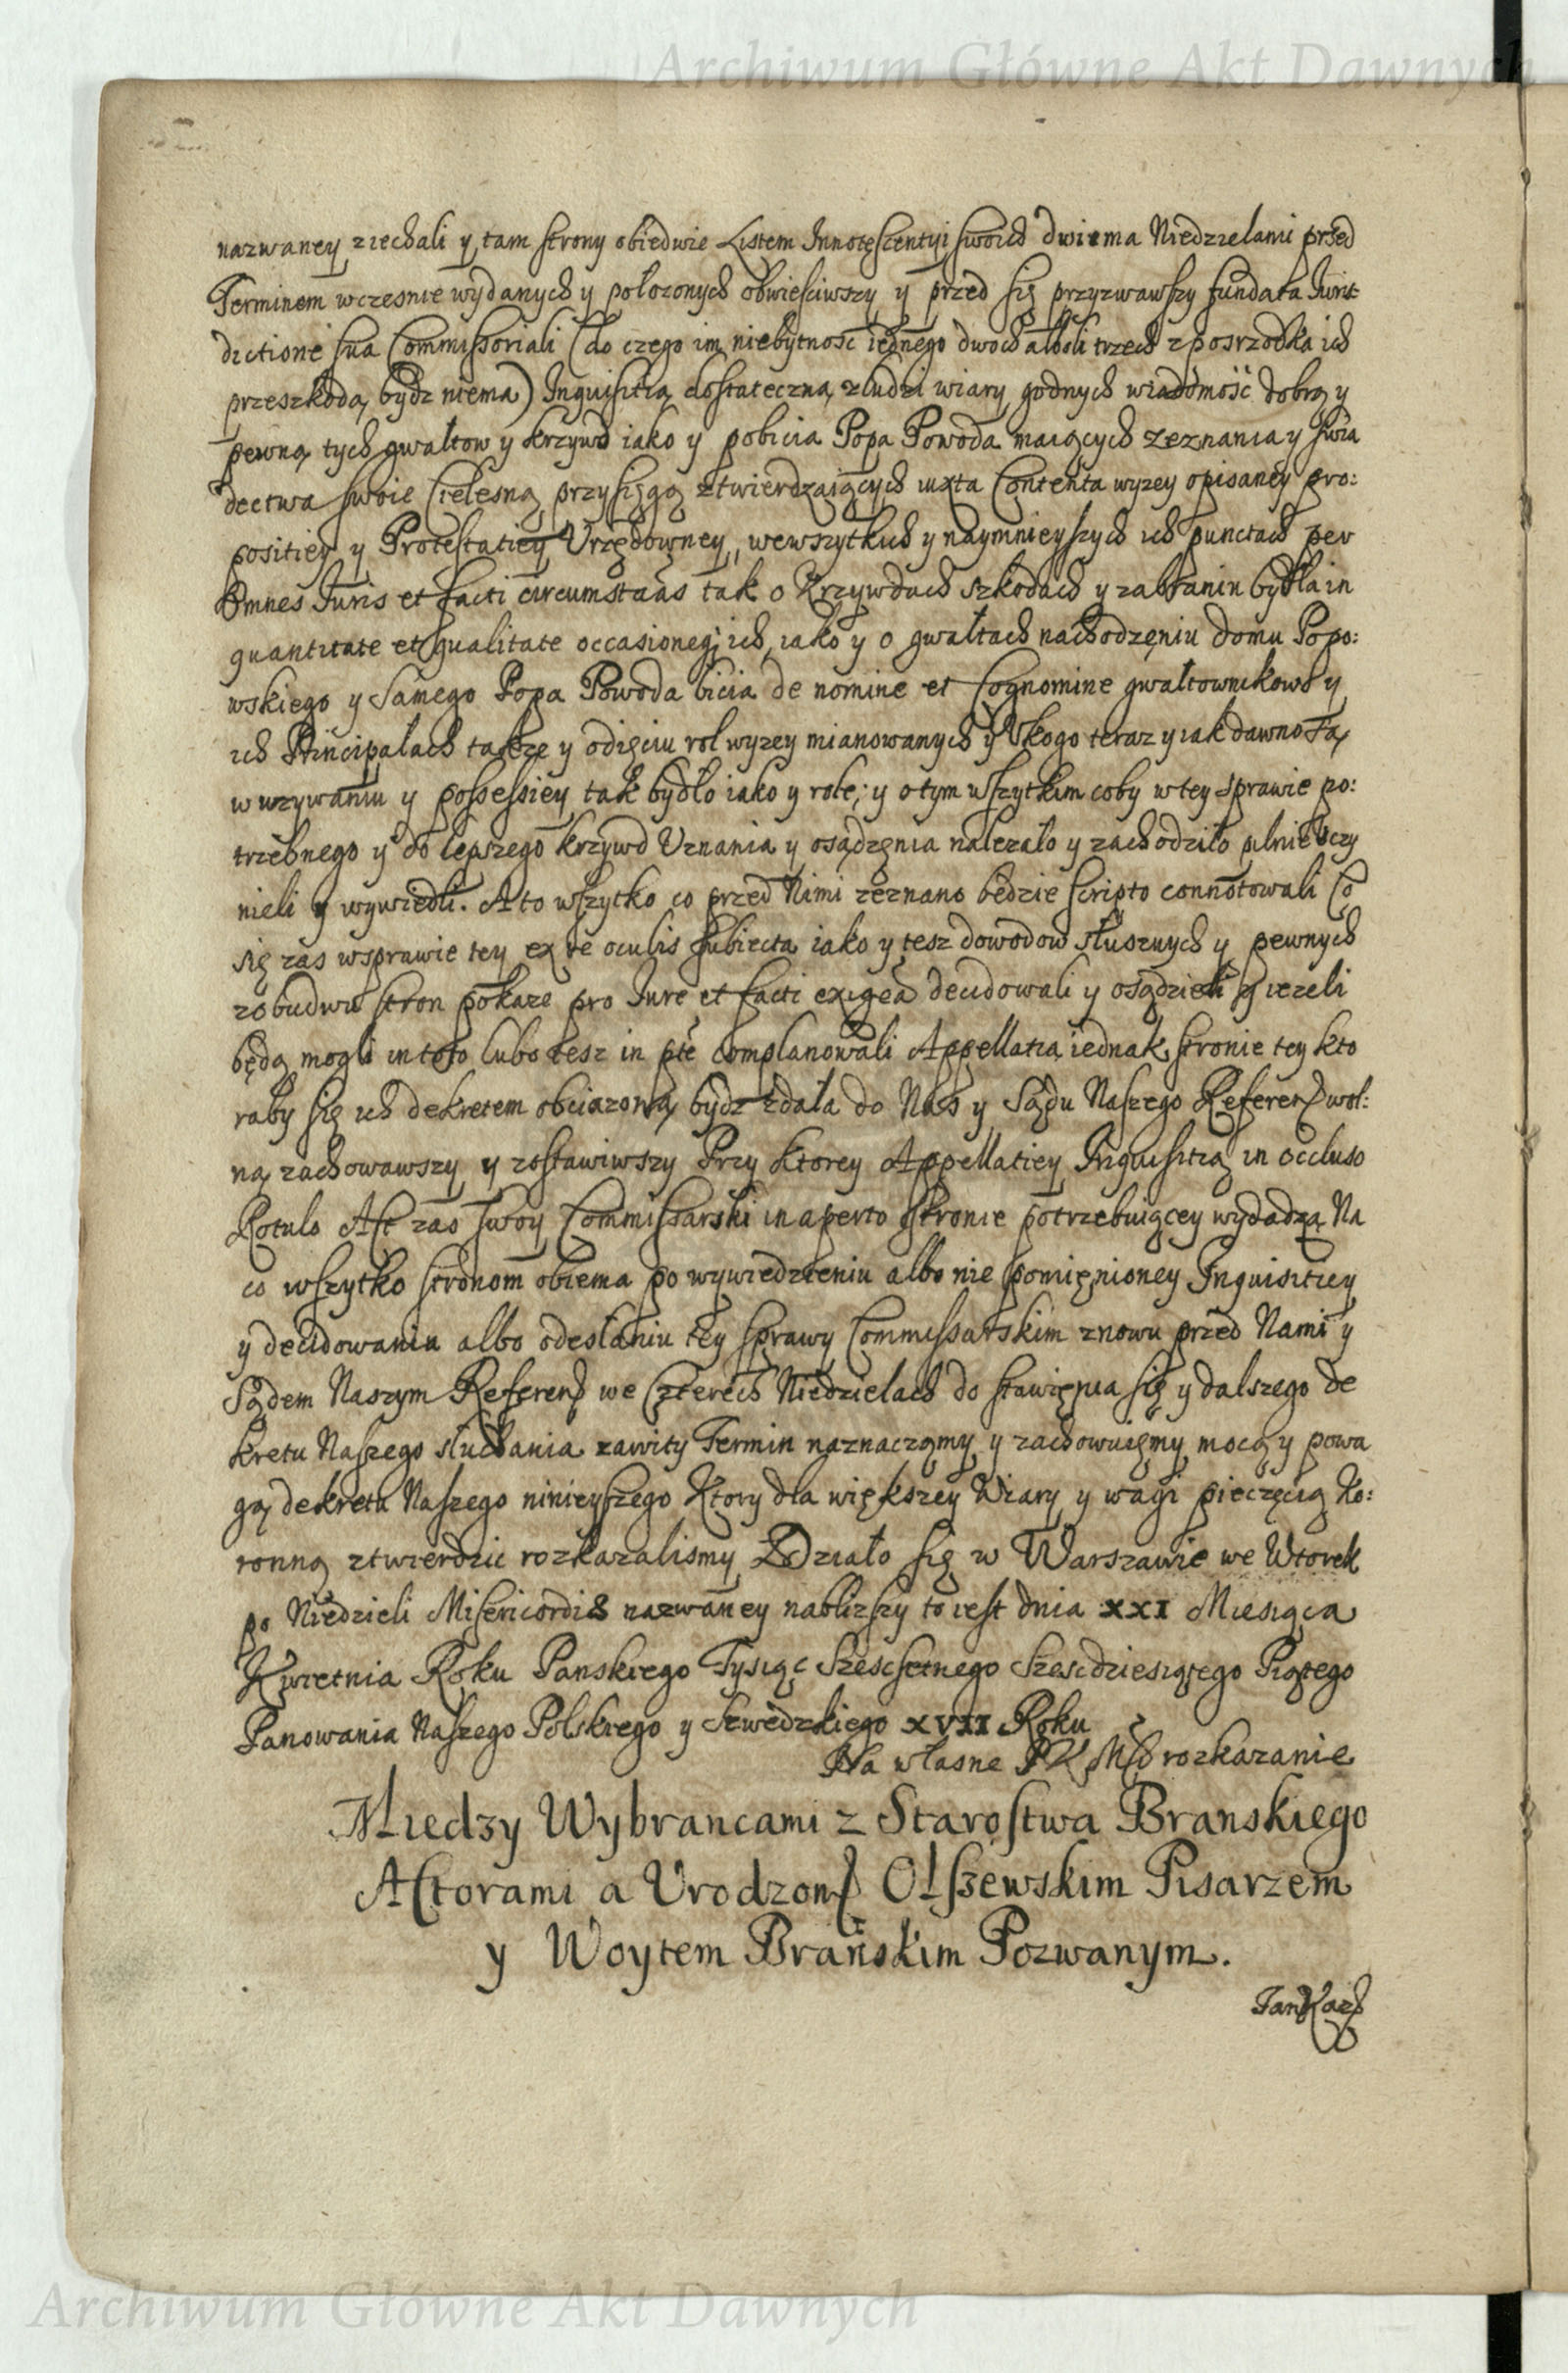 Archiwum Główne Akt Dawnych
nazwaney ziechali y tam strony obiedwie Listem Innotescentyi swoich dwiema Niedzielami przed
Terminem wczesnie wydanych y położonych obwieściwszy y przed się przyzwawszy fundata Juris
dictione sua Commissoriali (do czego im niebytność iednego dwoch alboli trzech z posrzodka ich
przeszkodą bydz niema) Inquisitią dostateczną z ludzi wiary godnych wiadomość dobrą y
pewną tych gwałtow y krzywd iako y pobicia Popa Powoda maiących zeznania y swia
dectwa swoie Cielesną przysięgą ztwierdzaiących iuxta Contenta wyzey opisaney pro:
positiey y Protestatiey Urzędowney, wewszytkich y naymnieyszych ich punctach per
Omnes Juris et facti circumstaas tak o Krzywdach szkodach y zabraniu bydła in
quantitate et qualitate occasioneq; ich, iako y o gwałtach nachodzeniu domu Popo:
wskiego y Samego Popa Powoda bicia de nomine et Cognomine gwałtownikow y
ich Principalach takze y odięciu rol wyzey mianowanych y Ukogo teraz y iak dawno są
w uzywaniu y possessiey tak bydło iako y role; y o tym wszytkim coby w tey sprawie po:
trzebnego y do lepszego krzywd Uznania y osądzenia nalezało y zachodziło pilnie Uczy
nieli y wywiedli. A to wszytko co przed Nimi zeznano będzie scripto connotowali Co
się zas wsprawie tey ex re oculis subiecta iako y tesz dowodow słusznych y pewnych
z obudwu stron pokaze pro Jure et facti exigea decidowali y osądzieli y iezeli
będą mogli in toto lubo tesz in pte complanowali Appellatią iednak stronie tey kto
raby się ich dekretem obciazoną bydz zdała do Nas y Sądu Naszego Referen wol:
ną zachowawszy y zostawiwszy Przy ktorey Appellatiey Inquisitią in occluso
Rotulo Act zas swoy Commissarski in aperto stronie potrzebuiącey wydadzą Na
co wszytko stronom obiema po wywiedzieniu albo nie pomienioney Inquisitiey
y decidowania albo odesłaniu tey sprawy Commissarskim znowu przed Nami y
Sądem Naszym Referen we Czterech Niedzielach do stawienia się y dalszego de
kretu Naszego słuchania zawity Termin naznaczamy y zachowuiemy mocą y powa
gą dekretu Naszego ninieyszego Ktory dla większey Wiary y wagi pieczęcią Ko:
ronną ztwierdzic rozkazalismy Działo się w Warszawie we Wtorek
po Niedzieli Misericordis nazwaney nablizszy to iest dnia XXI Miesiąca
Kwietnia Roku Panskiego Tysiąc Szescsetnego Szescdziesiątego Piątego
Panowania Naszego Polskiego y Szwedzkiego XVII Roku
Na własne rozkazanie
Miedzy Wybrancami z Starostwa Branskiego
Actorami a Urodzon Olszewskim Pisarzem
y Woytem Brańskim Pozwanym.
Archiwum Główne Akt Dawnych